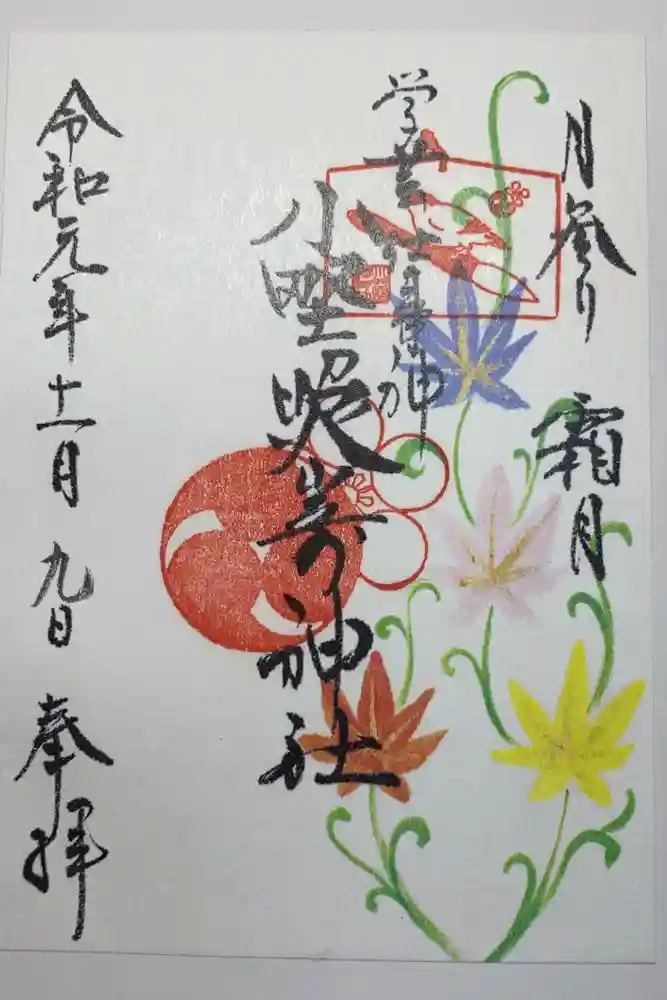 月参り 霜月
学芸 神
小野照嵜神社
令和元年十一月九日 奉拝